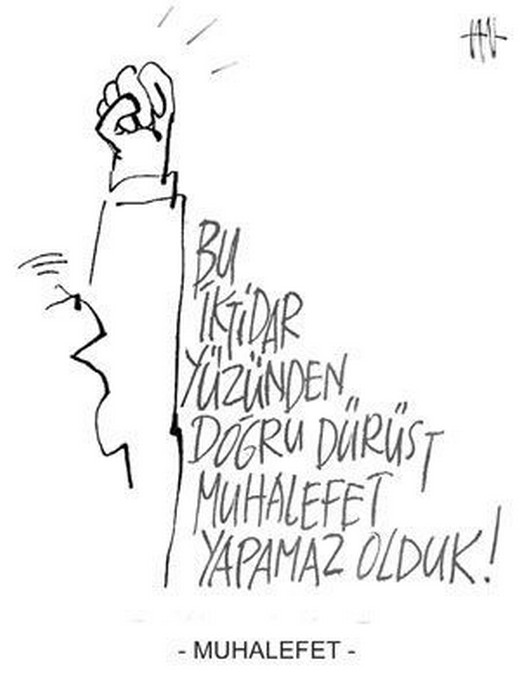 BU
İKTİDAR
YÜZÜNDEN
DOĞRU DÜRÜST
MUHALEFET
YAPAMAZ OLDUK!
- MUHALEFET -